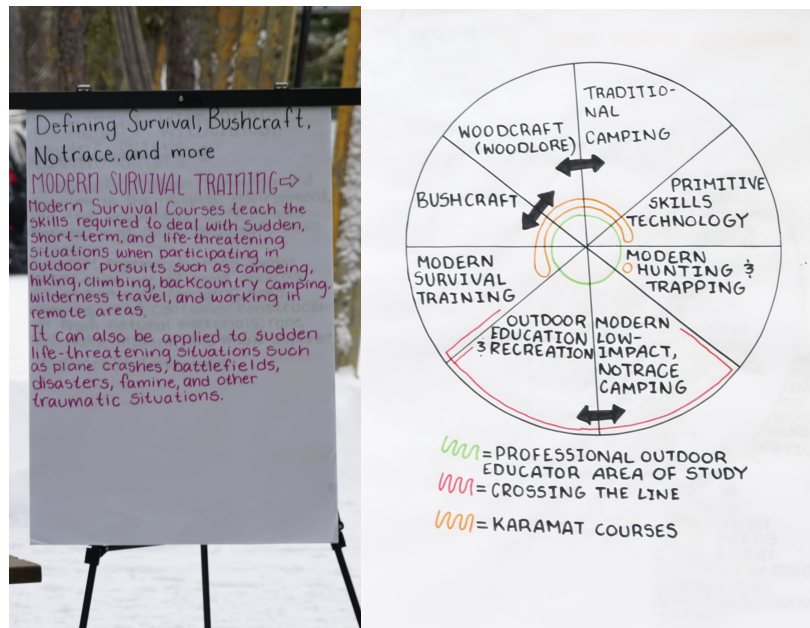 Defining Survival, Bushcraft,
Notrace, and more
MODERN SURVIVAL TRAINING⇨
Modern Survival Courses teach the
skills required to deal with sudden,
short-term, and life-threatening
situations when participating in
outdoor pursuits such as canoeing,
hiking, climbing, backcountry camping,
wilderness travel, and working in
remote areas.
It can also be applied to sudden
life-threatening situations such
as plane crashes, battlefields,
disasters, famine, and other
traumatic situations.
TRADITIO-
NAL
CAMPING
WOODCRAFT
(WOODLORE)
PRIMITIVE
SKILLS
TECHNOLOGY
BUSHCRAFT
MODERN
HUNTING &
TRAPPING
MODERN
SURVIVAL
TRAINING
OUTDOOR
EDUCATION
& RECREATION
MODERN
LOW-
IMPACT,
NOTRACE
CAMPING
= PROFESSIONAL OUTDOOR
EDUCATOR AREA OF STUDY
= CROSSING THE LINE
= KARAMAT COURSES